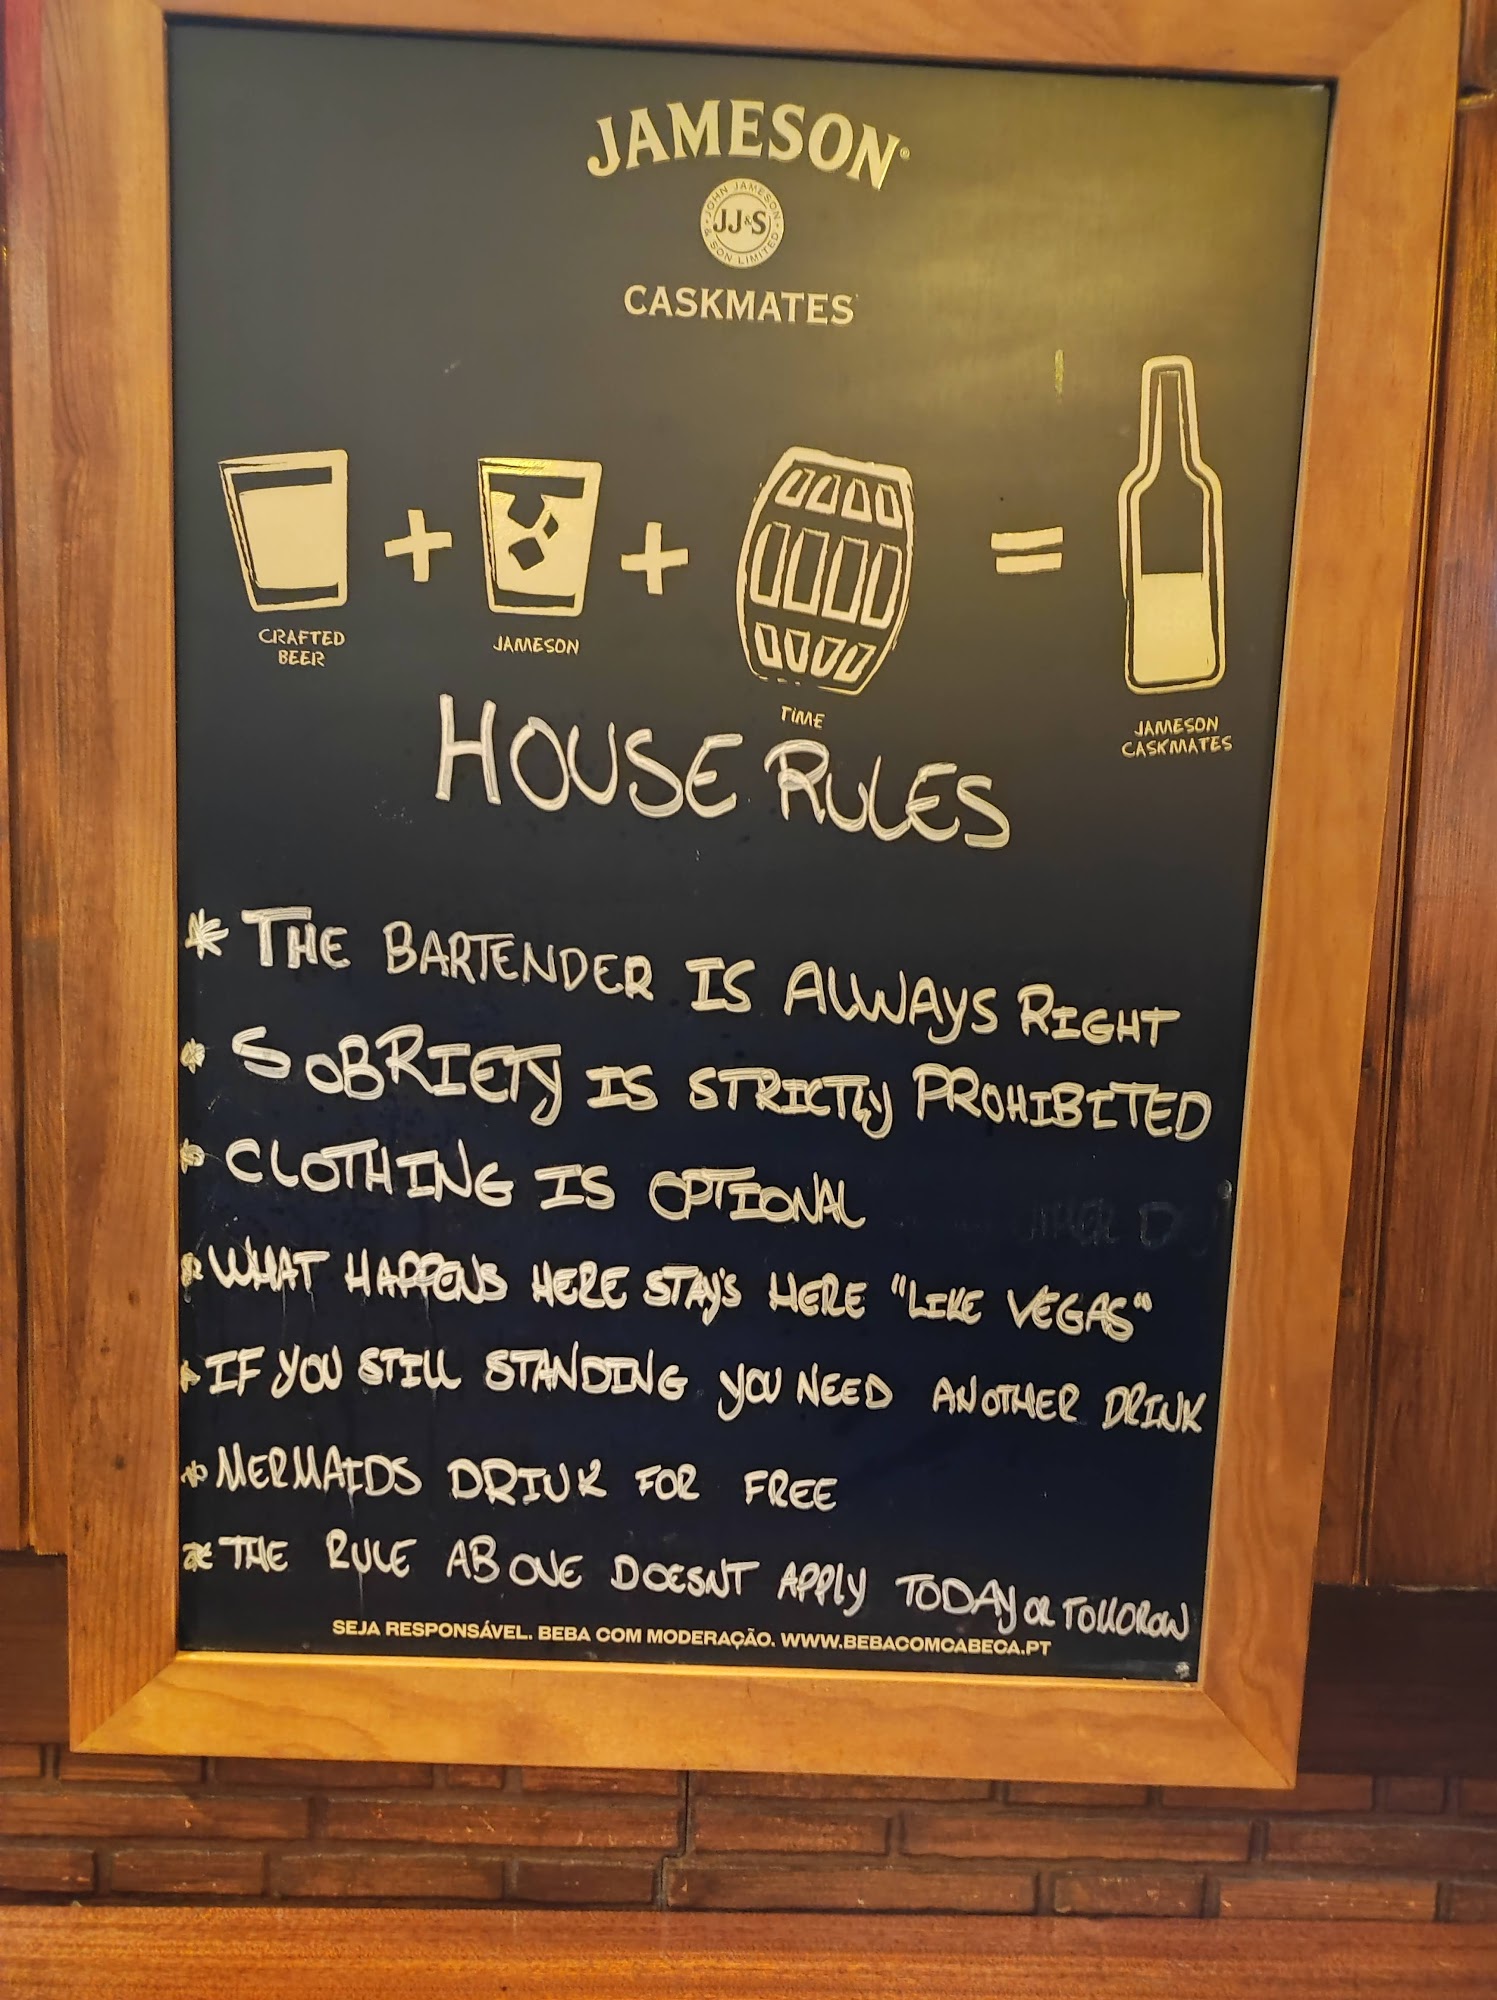 JAMESON®
JOHN JAMESON & SON LIMITED
JJ&S
CASKMATES
+ + =
CRAFTED
BEER
JAMESON
TIME
JAMESON
CASKMATES
HOUSE RULES
* THE BARTENDER IS ALWAYS RIGHT
* SOBRIETY IS STRICTLY PROHIBITED
* CLOTHING IS OPTIONAL
* WHAT HAPPENS HERE STAY'S HERE "LIKE VEGAS"
* IF YOU STILL STANDING YOU NEED ANOTHER DRINK
* MERMAIDS DRINK FOR FREE
* THE RULE ABOVE DOESNT APPLY TODAY OR TOMOROW
SEJA RESPONSÁVEL. BEBA COM MODERAÇÃO. WWW.BEBACOMCABECA.PT